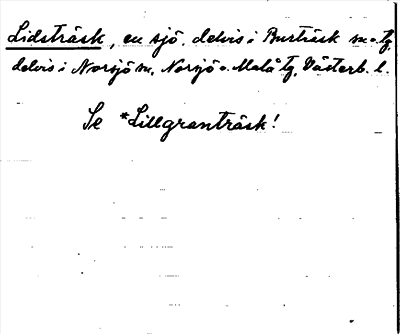 Lidsträsk, en sjö, delvis i Burträsk sn o. tg,
delvis i Norsjö sn, Norsjö o. Malå tg, Västerb. l.
Se *Lillgranträsk!